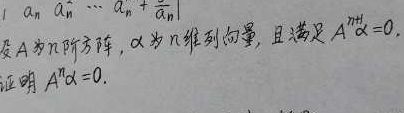 1 aₙ aₙ² ⋯ aₙⁿ + 
设A为n阶方阵，α为n维列向量，且满足 Aⁿ⁺¹α=0.
证明 Aⁿα=0.